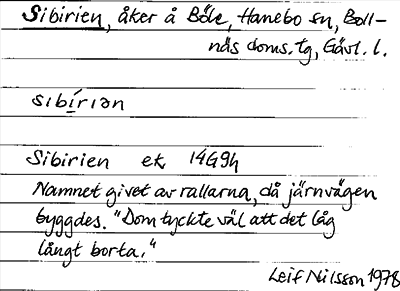 Sibirien, åker å Böle, Hanebo sn, Boll-
näs doms. tg, Gävl. l.
sɩbí̱rɩən
Sibirien ek 14G9h
Namnet givet av rallarna, då järnvägen
byggdes. "Dom tyckte väl att det låg
långt borta."
Leif Nilsson 1978